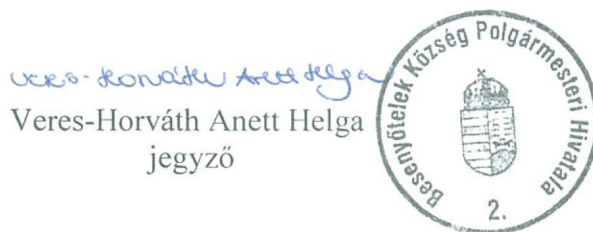 Veres-Horváth Anett Helga
Veres-Horváth Anett Helga
jegyző
Besenyőtelek Község Polgármesteri Hivatala
2.